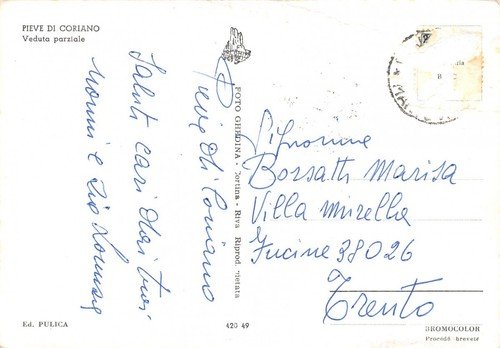 PIEVE DI CORIANO
Veduta parziale
Pieve di Coriano
Saluti cari dai tuoi
nonni e zio
FOTO GHEDINA - Cortina - Riva Riprod. vietata
Signorina
Borsatti Marisa
Villa Mirella
Fucine 38026
Trento
Ed. PULICA
420 49
BROMOCOLOR
Procédé breveté